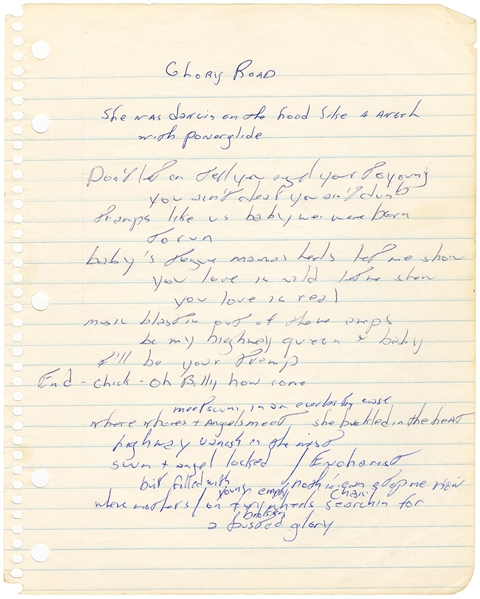 Glory Road
She was dancin on the hood like a angel
with powerglide
Don't let on tell you and your to young
you ain't deaf you ain't dumb
tramps like us baby we were born
to run
baby's mamas heels let me show
you love is wild let me show
you love is real
music blastin out of those amps
be my highway queen + baby
I'll be your tramp
End - chick - oh Billy how come
meet scum, in an everlasting
where whores + Angels meet she buckled in the heat
highway vanish in the mist
scum + angel locked / Eucharist
but filled with young empty nothin can stop me now
where mothers / on wheels searchin for
broken Chair
a busted glory